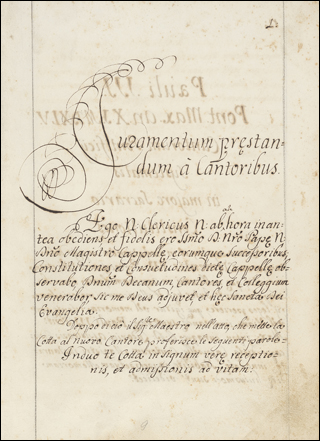 1.
Juramentum pręstan-
dum à Cantoribus.
Ego N. Clericus N. ab hora inan-
tea obediens et fidelis ero Smo D. Nro Papę N.
Dno Magistro Cappellę, eorumque successoribus,
Constitutiones et Consuetudines dictę Cappellę ob-
servabo, Dnum Decanum, Cantores, et Collegium
venerabor, sic me Deus adjuvet, et hęc Sancta Dei
Evangelia.
Doppo ciò il Sigr Maestro nell'atto, che mette la
Cotta al Nuovo Cantore proferisce le seguenti parole
Induo te Cotta in signum verę receptio-
nis, et admissionis ad vitam.